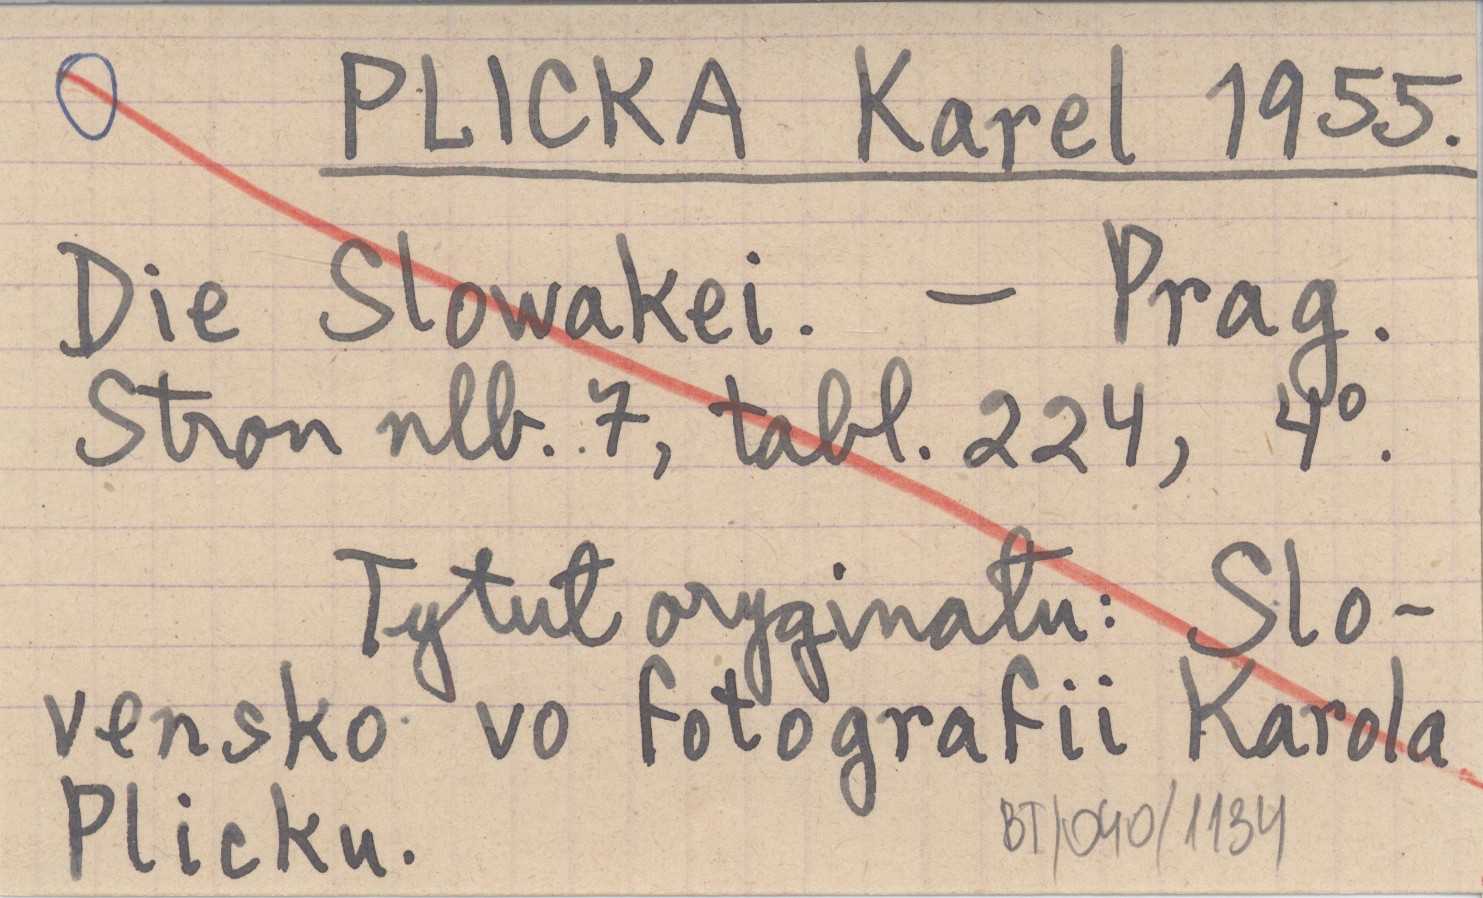 PLICKA Karel 1955.
Die Slowakei. — Prag.
Stron nlb. 7, tabl. 224, 4°.
Tytuł oryginału: Slo-
vensko vo fotografii Karola
Plicku.
BT/040/1134